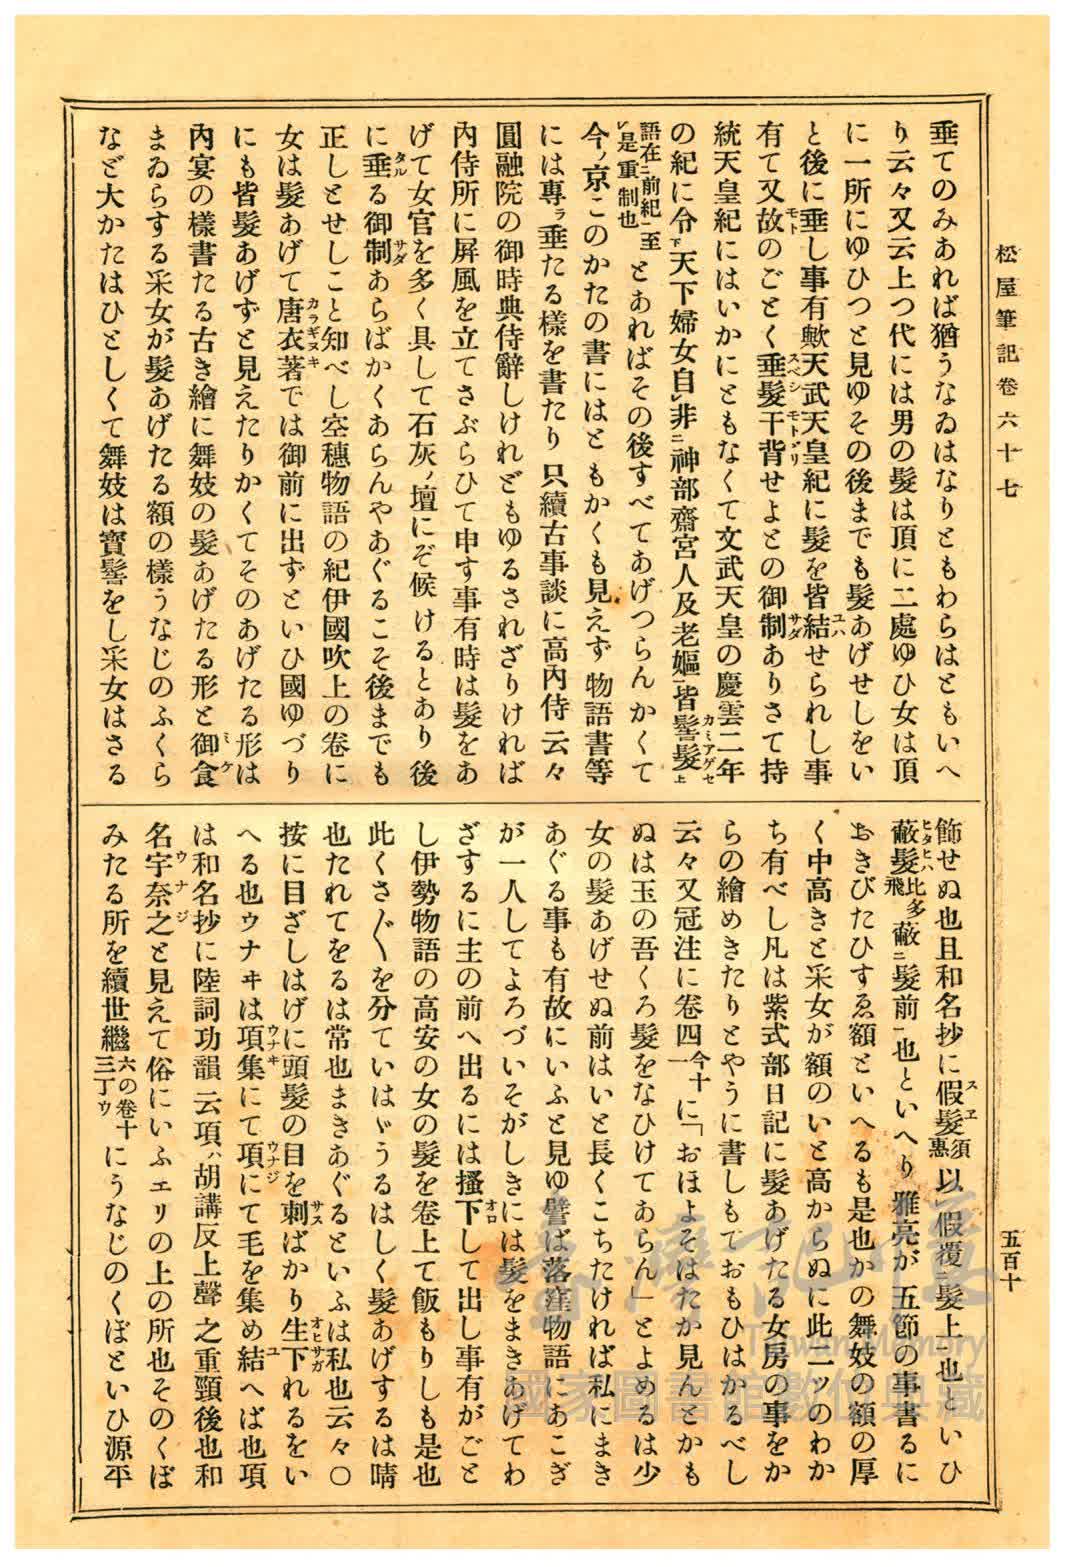 松屋筆記卷六十七
五百十
垂てのみあれば猶うなゐはなりともわらはともいへ
り云々又云上つ代には男の髮は頂に二處ゆひ女は頂
に一所にゆひつと見ゆその後までも髮あげせしをい
と後に垂し事有歟天武天皇紀に髮を皆結せられし事
有て又故のごとく垂髮干背せよとの御制ありさて持
統天皇紀にはいかにともなくて文武天皇の慶雲二年
の紀に令下天下婦女自レ非ニ神部齋宮人及老嫗一皆髻髮上
語在ニ前紀一至レ是重制也とあればその後すべてあげつらんかくて
今ノ京このかたの書にはともかくも見えず物語書等
には專ラ垂たる樣を書たり只續古事談に高內侍云々
圓融院の御時典侍辭しけれどもゆるされざりければ
內侍所に屏風を立てさぶらひて申す事有時は髮をあ
げて女官を多く具して石灰ノ壇にぞ候けるとあり後
に垂る御制あらばかくあらんやあぐるこそ後までも
正しとせしこと知べし空穗物語の紀伊國吹上の卷に
女は髮あげて唐衣著では御前に出ずといひ國ゆづり
にも皆髮あげずと見えたりかくてそのあげたる形は
內宴の樣書たる古き繪に舞妓の髮あげたる形と御食
まゐらする采女が髮あげたる額の樣うなじのふくら
など大かたはひとしくて舞妓は寶髻をし采女はさる
飾せぬ也且和名抄に假髮須惠以レ假覆ニ髮上一也といひ
蔽髮比多飛蔽ニ髮前一也といへり雅亮が五節の事書るに
おきびたひすゑ額といへるも是也かの舞妓の額の厚
く中高きと采女が額のいと高からぬに此二ツのわか
ち有べし凡は紫式部日記に髮あげたる女房の事をか
らの繪めきたりとやうに書しもておもひはかるべし
云々又冠注に卷四今十一に「おほよそはたか見んとかも
ぬは玉の吾くろ髮をなひけてあらん」とよめるは少
女の髮あげせぬ前はいと長くこちたければ私にまき
あぐる事も有故にいふと見ゆ譬ば落窪物語にあこぎ
が一人してよろづいそがしきには髮をまきあげてわ
ざするに主の前へ出るには搔下して出し事有がごと
し伊勢物語の高安の女の髮を卷上て飯もりしも是也
此くさ〴〵を分ていはゞうるはしく髮あげするは晴
也たれてをるは常也まきあぐるといふは私也云々○
按に目ざしはげに頭髮の目を刺ばかり生下れるをい
へる也ウナヰは項集にて項にて毛を集め結へば也項
は和名抄に陸詞功韻云項ハ胡講反上聲之重頸後也和
名宇奈之と見えて俗にいふエリの上の所也そのくぼ
みたる所を續世繼六の卷十三丁ウにうなじのくぼといひ源平